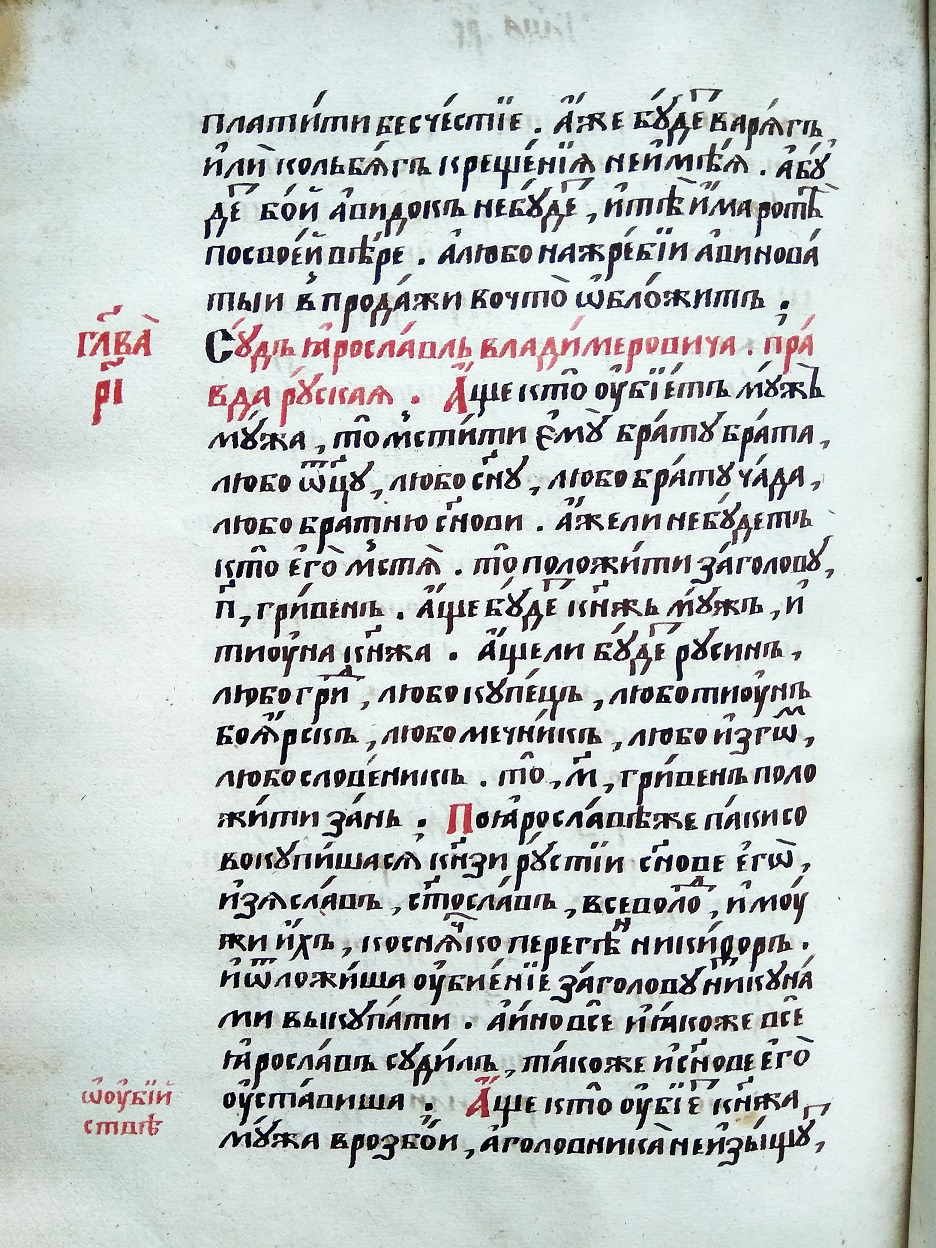 платити бесчестїе . а́же бу́де варѧ́гъ
и́лѝ кольбѧ́гъ креще́нїѧ неи́мѣ́ѧ . а́бꙋ́
де бо́й а́видокъ небꙋ́де , и́тѣ̀ и́ма ротѣ̀
посвое́й вѣ́ре . а́любо нажре́бїи а́винова́
тыи в̾прода́жи вочто̀ ѡ҆бло́житъ .
гл҃ва̀
Сꙋ́дъ ꙗ҆росла́вль влади́меровича . пра́
р҃і
вда рꙋ́скаѧ . А҆́ще кто̀ оу҆бїе́тъ мꙋ́жъ
мꙋ́жа , то̀ м̾сти́ти є҆мꙋ̀ бра́тꙋ бра́та ,
любо ѿц҃ꙋ , любо сн҃ꙋ , любо бра́тꙋ ча́да ,
любо братню сн҃ови . а҆́жели небꙋ́детъ
кто̀ е҆го̀ м̾стѧ̀ . то̀ положи́ти за́головꙋ ,
п҃ , гри́венъ . а҆́ще бꙋ́де кн҃жь мꙋ́жъ , и҆
тиоу́на кн҃жа . а҆́щели бꙋ́де рꙋсинъ ,
любо гриⷣ , любо кꙋпе́цъ , любо тиоу́нъ
боѧ҆́рскъ , любо мечни́къ , любо и҆згѡⷨ ,
любо слове́никъ . то̀ , м҃ , гри́венъ поло
жи́ти за́нь . Поꙗ҆росла́вѣже па́ки со
вокꙋпи́шасѧ кн҃зи рꙋ́стїи сн҃ове е҆гѡ̀ ,
и҆зѧсла́въ , ст҃осла́въ , всеволоⷣ , и҆моу́
жи и҆́хъ , коснѧ́чко перегѣⷩ никифоръ .
и҆ѿложи́ша оу҆бие́нїе за́головꙋ никꙋна́
ми выкꙋпа́ти . а҆и҆но всѐ и҆ꙗ҆коже всѐ
ꙗ҆росла́въ сꙋди́лъ , та́коже и҆сн҃ове е҆го̀
ѡ҆оу҆бїи҆
оу҆ста́виша . А҆́ще кто̀ оу҆бїѐ кн҃жа
ствѣ
мꙋ́жа врозбо́и , а҆головника̀ неи҆зы́щꙋ ,